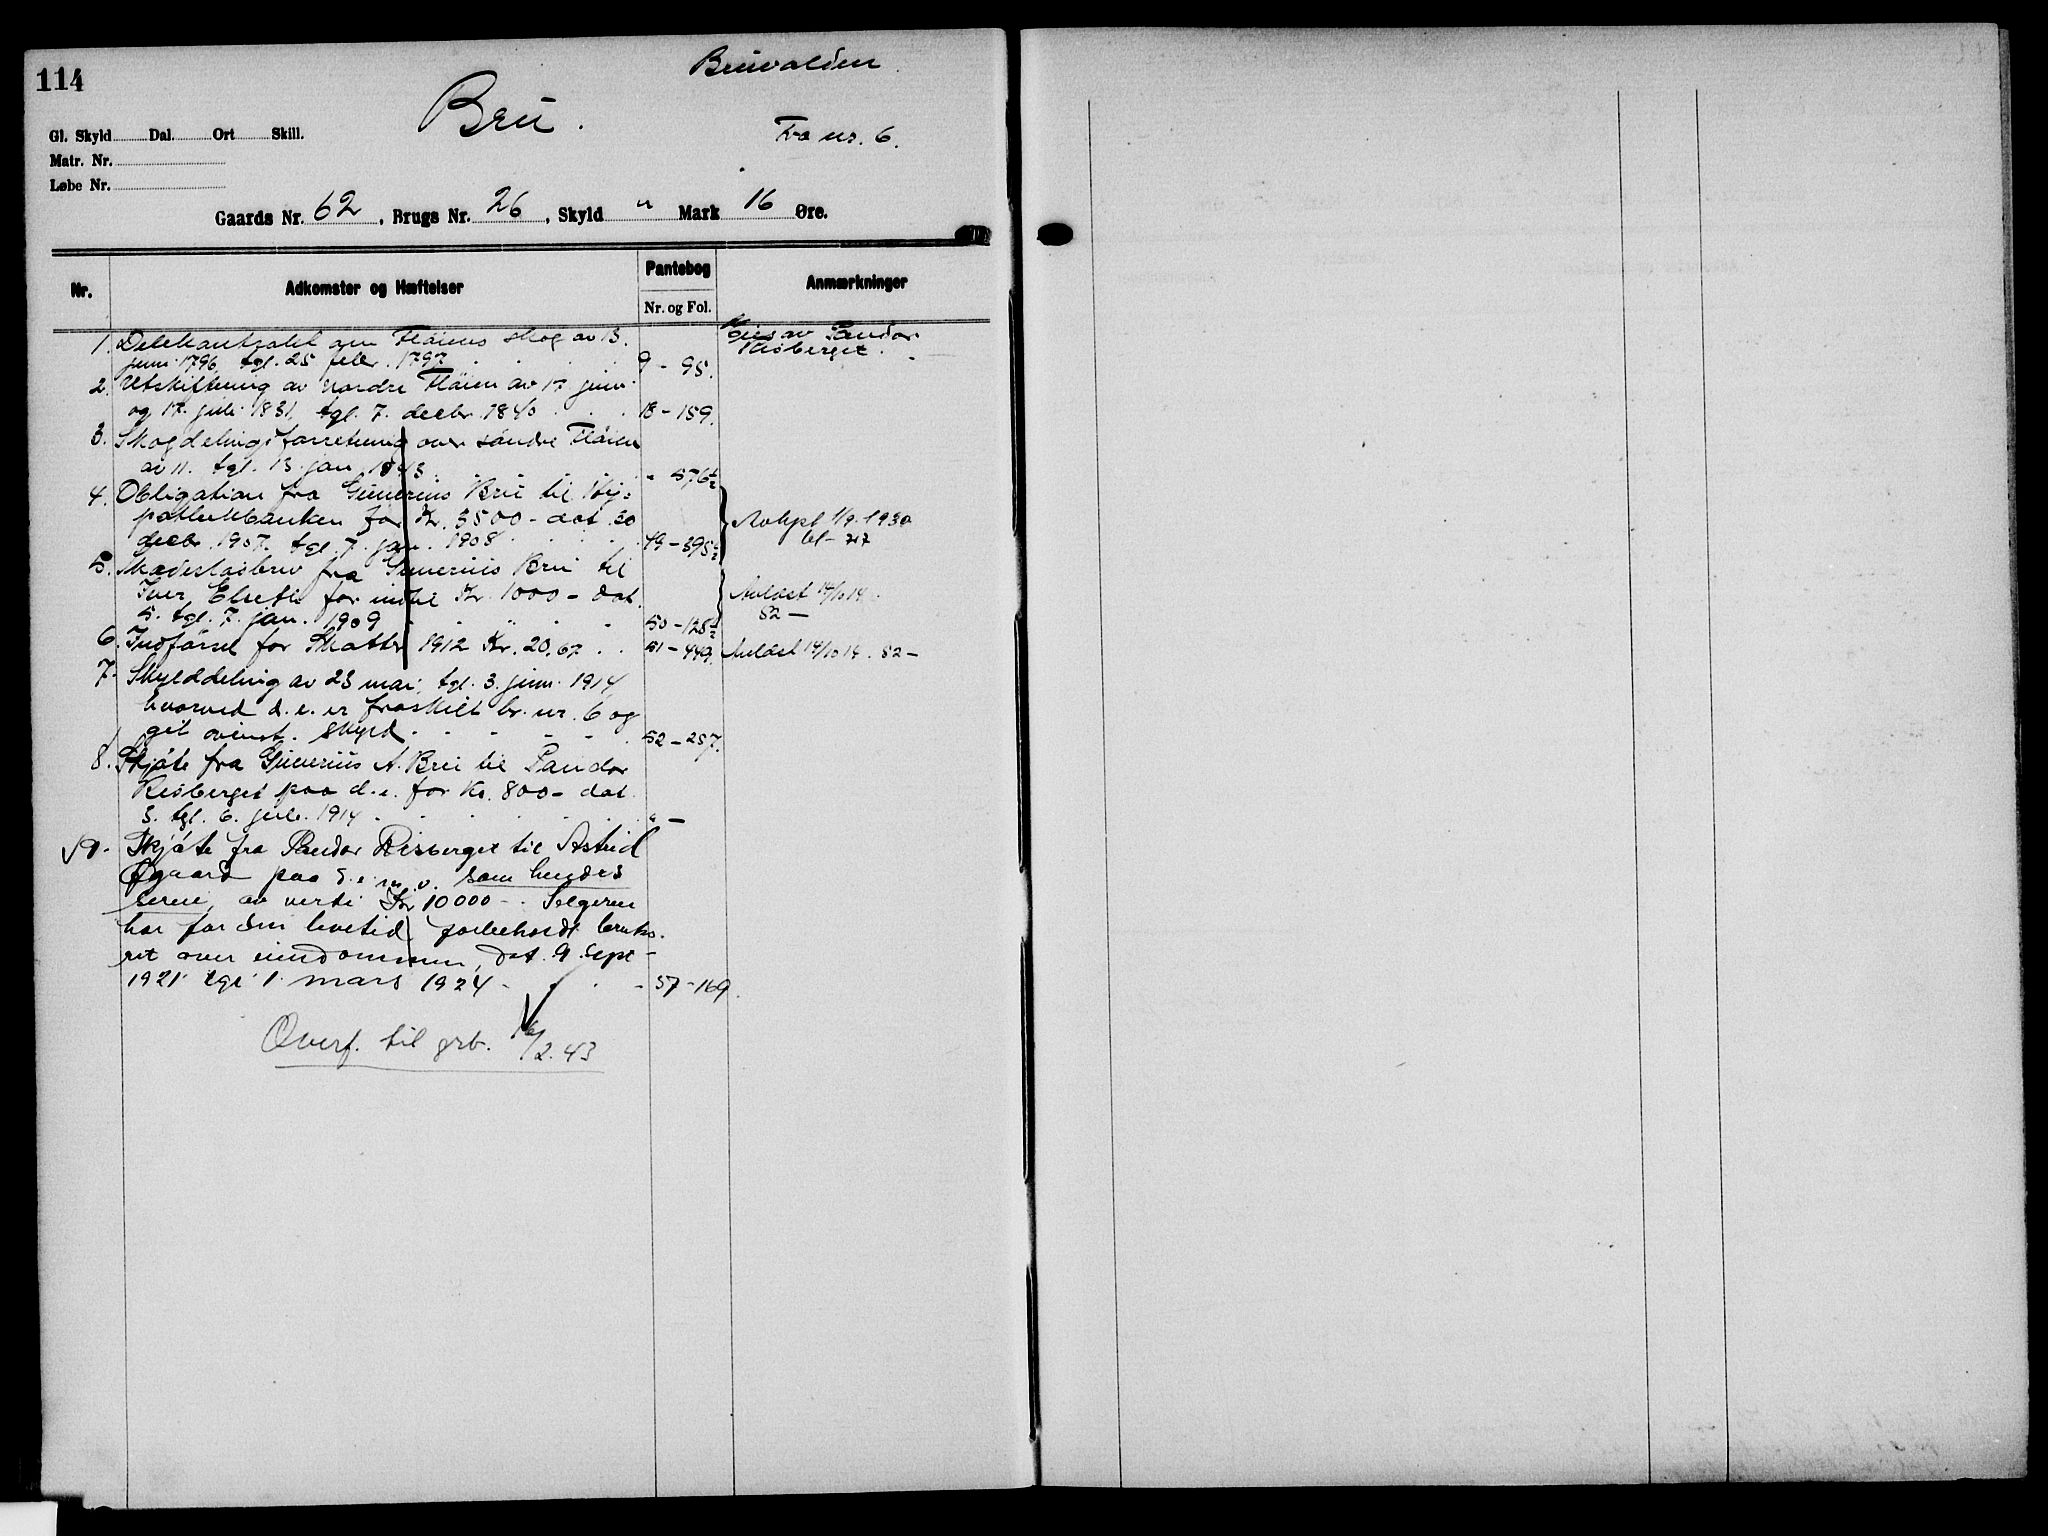 114
Bruvolden
Bru.
Fra nr. 6.
Gl. Skyld Dal. Ort Skill.
Matr. Nr.
Løbe Nr.
Gaards Nr. 62, Brugs Nr. 26, Skyld " Mark 16 Øre.
Nr. Adkomster og Hæftelser Pantebog Anmærkninger
Nr. og Fol.
1. Delekontrakt om Fløiens skog av 13.
juni 1796, tgl. 25 febr. 1797. 9 - 95.
Eies av Pandor
Risberget.
2. Utskiftning av nordre Fløien av 17. juni
og 17. juli 1831, tgl. 7. decbr. 1840 18 - 159.
3. Skogdelingsforretning over søndre Fløien
av 11. tgl. 13. jan. 1843. " 576½
4. Obligation fra Gunerius Bru til Hy-
pothekbanken for Kr. 3500 - dat. 30
decbr. 1907. tgl. 7. jan. 1908 49 - 395½
Avlyst 1/9. 1930
bl - 717
5. Skadesløsbrev fra Gunerius Bru til
Iver Elseth for indtil Kr. 1000 - dat.
5. tgl. 7. jan. 1909 50 - 128½
Avlæst 14/10 14.
52 -
6. Indførsel for Skatter 1912 Kr. 20.67 51 - 449. Avlæst 14/10 14. 52 -
7. Skylddeling av 23 mai, tgl. 3. juni 1914,
hvorved d. e. er fraskilt br. nr. 6 og
git ovenst. skyld. 52 - 257.
8. Skjøte fra Gunerius A. Bru til Pandor
Risberget paa d. e. for Kr. 800 - dat.
3. tgl. 6. juli 1914 " -
9. Skjøte fra Pandor Risberget til Astrid
Øgaard paa d. e. m. v. som hendes
sereie, av verdi Kr 10000 -. Selgeren
har for sin levetid forbeholdt bruks-
ret over eiendommen, dat. 9. Sept
1921 tgl 1 mars 1924 57 - 169.
Overf. til grb. 16/2. 43